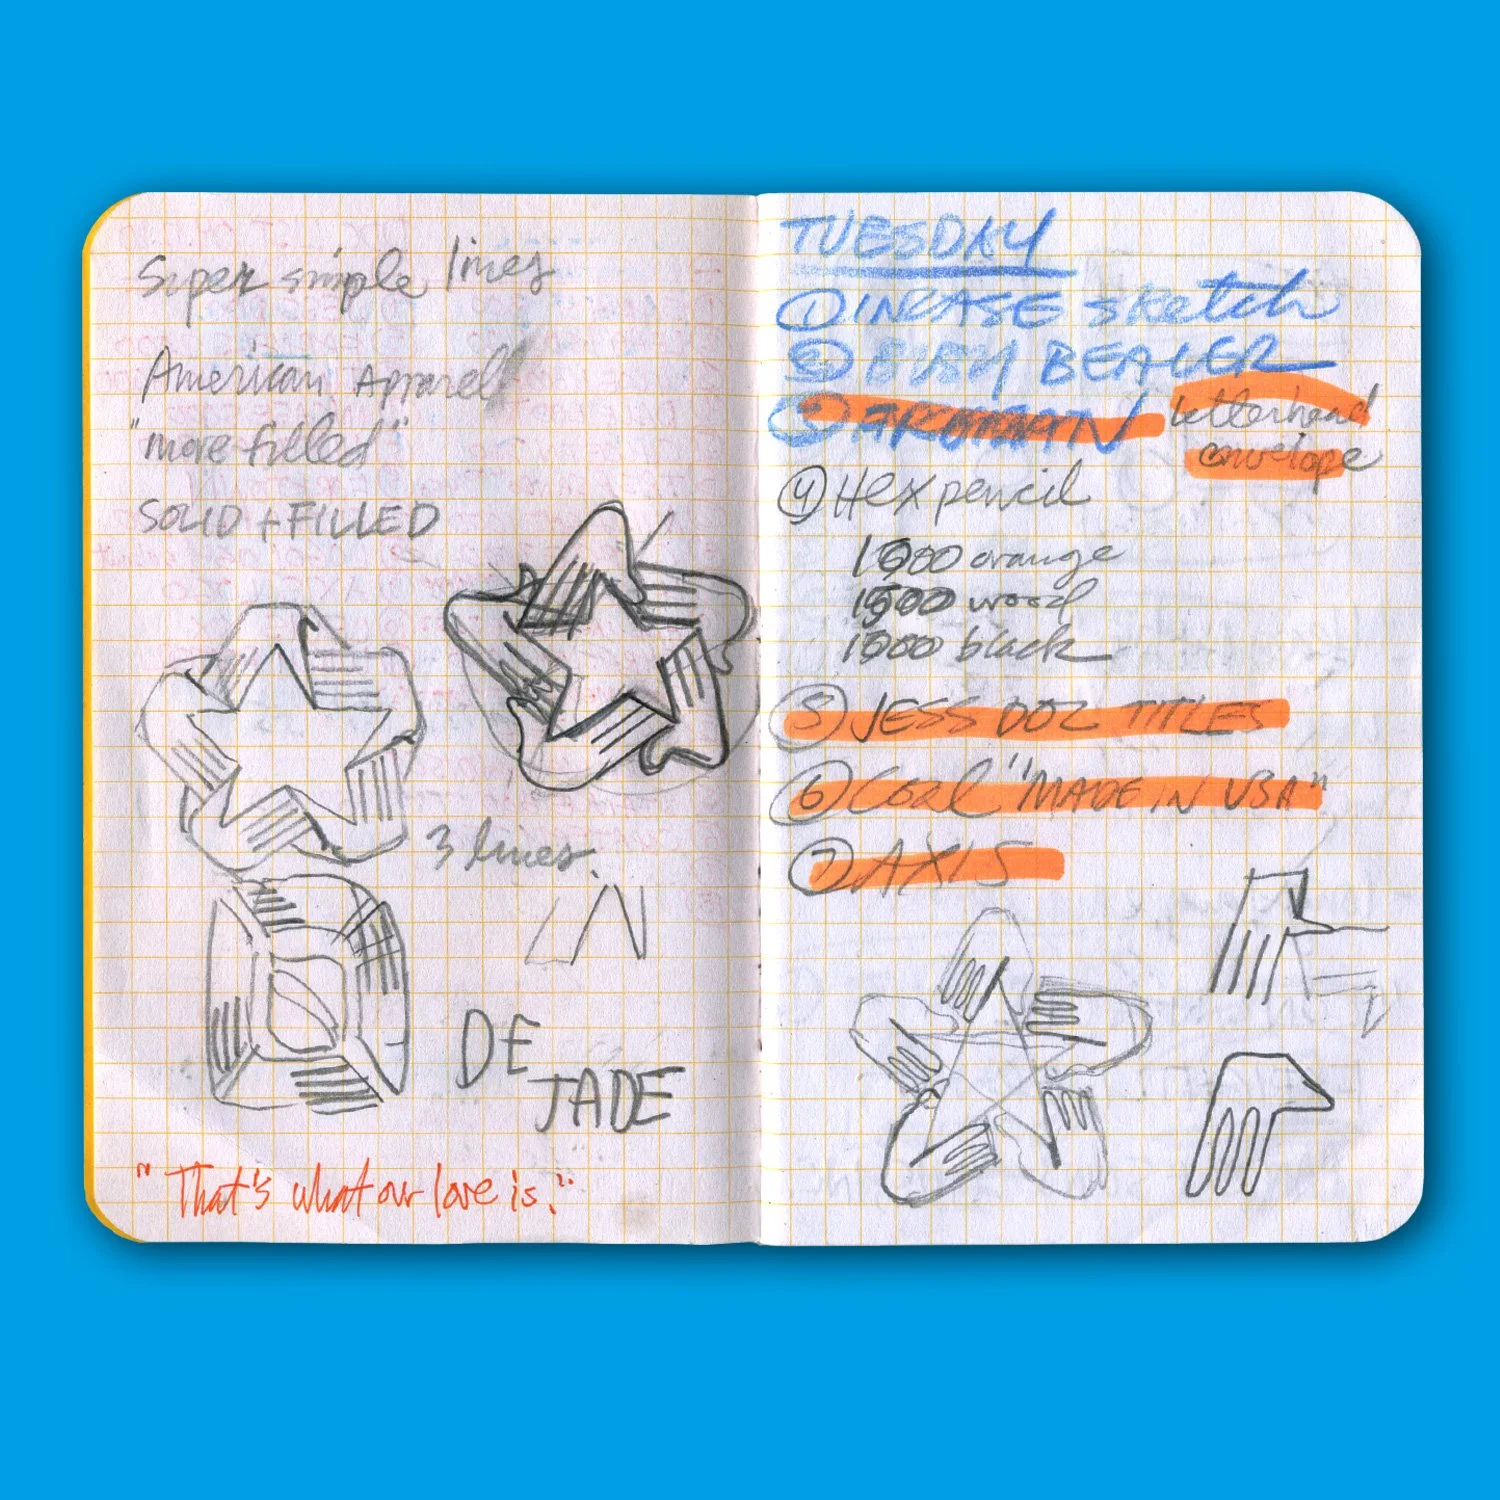 Super simple lines
American Apparel
"more filled"
SOLID + FILLED
3 lines.
DE
JADE
"That's what our love is."
TUESDAY
① INCASE sketch
② BUSY BEAVER
③ letterhead
envelope
④ Hex pencil
1500 orange
1500 wood
1000 black
⑤ JESS DOZ TITLES
⑥ COAL "MADE IN USA"
⑦ AXIS